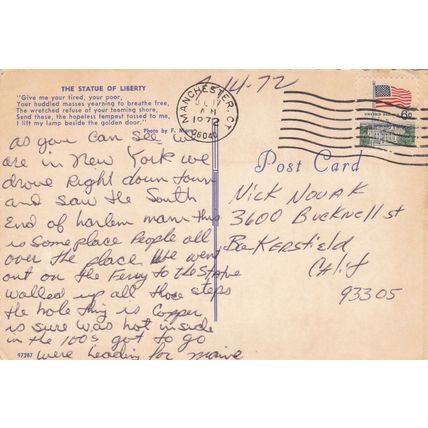 THE STATUE OF LIBERTY
"Give me your tired, your poor,
Your huddled masses yearning to breathe free,
The wretched refuse of your teeming shore,
Send these, the hopeless tempest tossed to me,
I lift my lamp beside the golden door."
Photo by F.
MANCHESTER, CT
AM
1972
06040
6¢
14-72
as you can see we
are in New York we
drove Right down town
and saw the South
End of harlem mann this
is some place People all
over the place we went
out on the Ferry to the State
walked up all those steps
the hole thing is copper
is sure was hot inside
in the 100s got to go
were heading for maine
97287
Post Card
Nick Novak
3600 Bucknell st
Bakersfield
Calif
93305